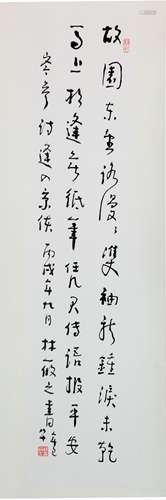 故園東望路漫漫雙袖龍鍾淚未乾
馬上相逢無紙筆凭君傳語報平安
岑參詩逢入京使丙戌年九月林筱之書